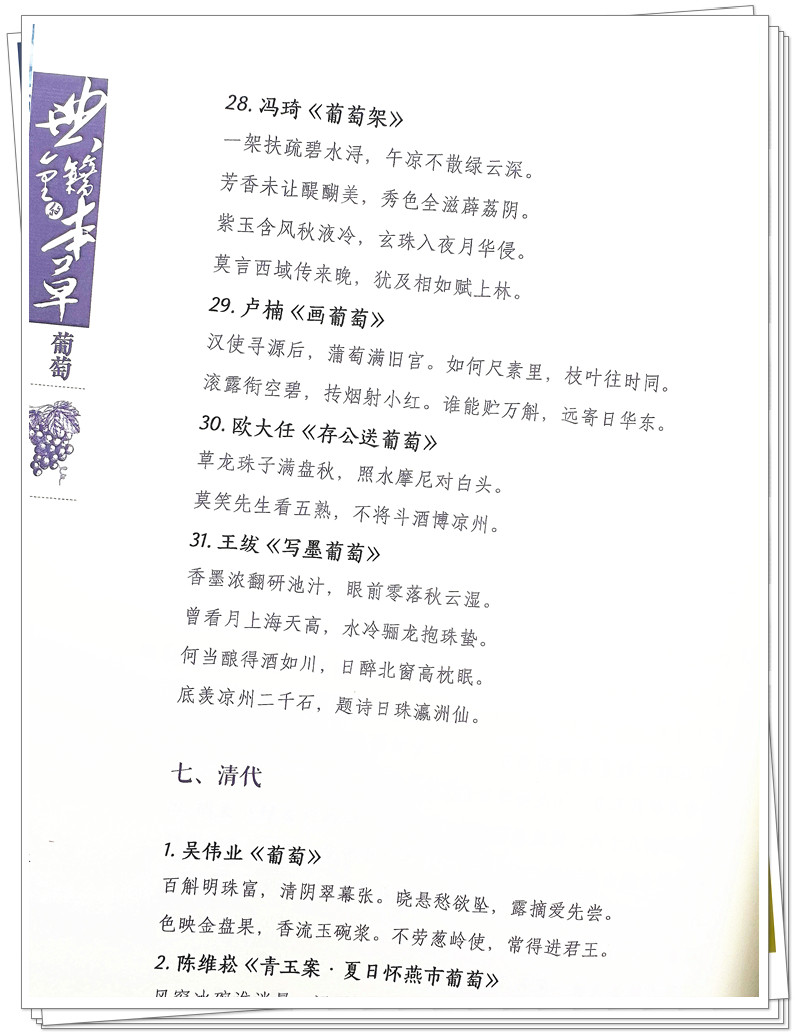 典籍里的本草
葡萄
28. 冯琦《葡萄架》
一架扶疏碧水浔，午凉不散绿云深。
芳香未让醍醐美，秀色全滋薜荔阴。
紫玉含风秋液冷，玄珠入夜月华侵。
莫言西域传来晚，犹及相如赋上林。
29. 卢楠《画葡萄》
汉使寻源后，蒲萄满旧宫。如何尺素里，枝叶往时同。
滚露衔空碧，抟烟射小红。谁能贮万斛，远寄日华东。
30. 欧大任《存公送葡萄》
草龙珠子满盘秋，照水摩尼对白头。
莫笑先生看五熟，不将斗酒博凉州。
31. 王绂《写墨葡萄》
香墨浓翻研池汁，眼前零落秋云湿。
曾看月上海天高，水冷骊龙抱珠蛰。
何当酿得酒如川，日醉北窗高枕眠。
底羡凉州二千石，题诗日珠瀛洲仙。
七、清代
1. 吴伟业《葡萄》
百斛明珠富，清阴翠幕张。晓悬愁欲坠，露摘爱先尝。
色映金盘果，香流玉碗浆。不劳葱岭使，常得进君王。
2. 陈维崧《青玉案·夏日怀燕市葡萄》